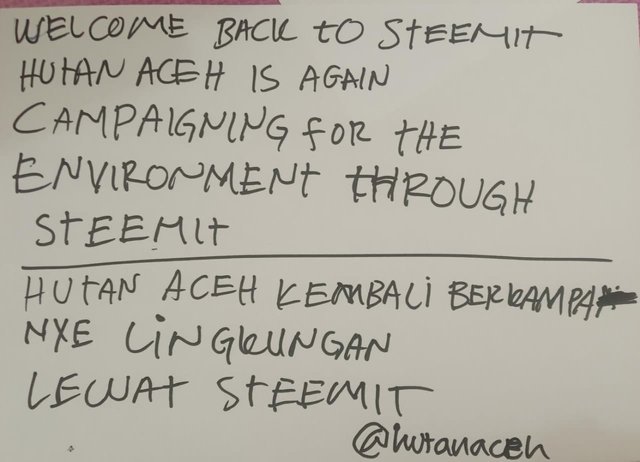 WELCOME BACK to STEEMIT
HUTAN ACEH IS AGAIN
CAMPAIGNING FOR THE
ENVIRONMENT THROUGH
STEEMIt
HUTAN ACEH KEMBALI BERKAMPA
NYE LINGKUNGAN
LEWAT STEEMIT
@hutanaceh